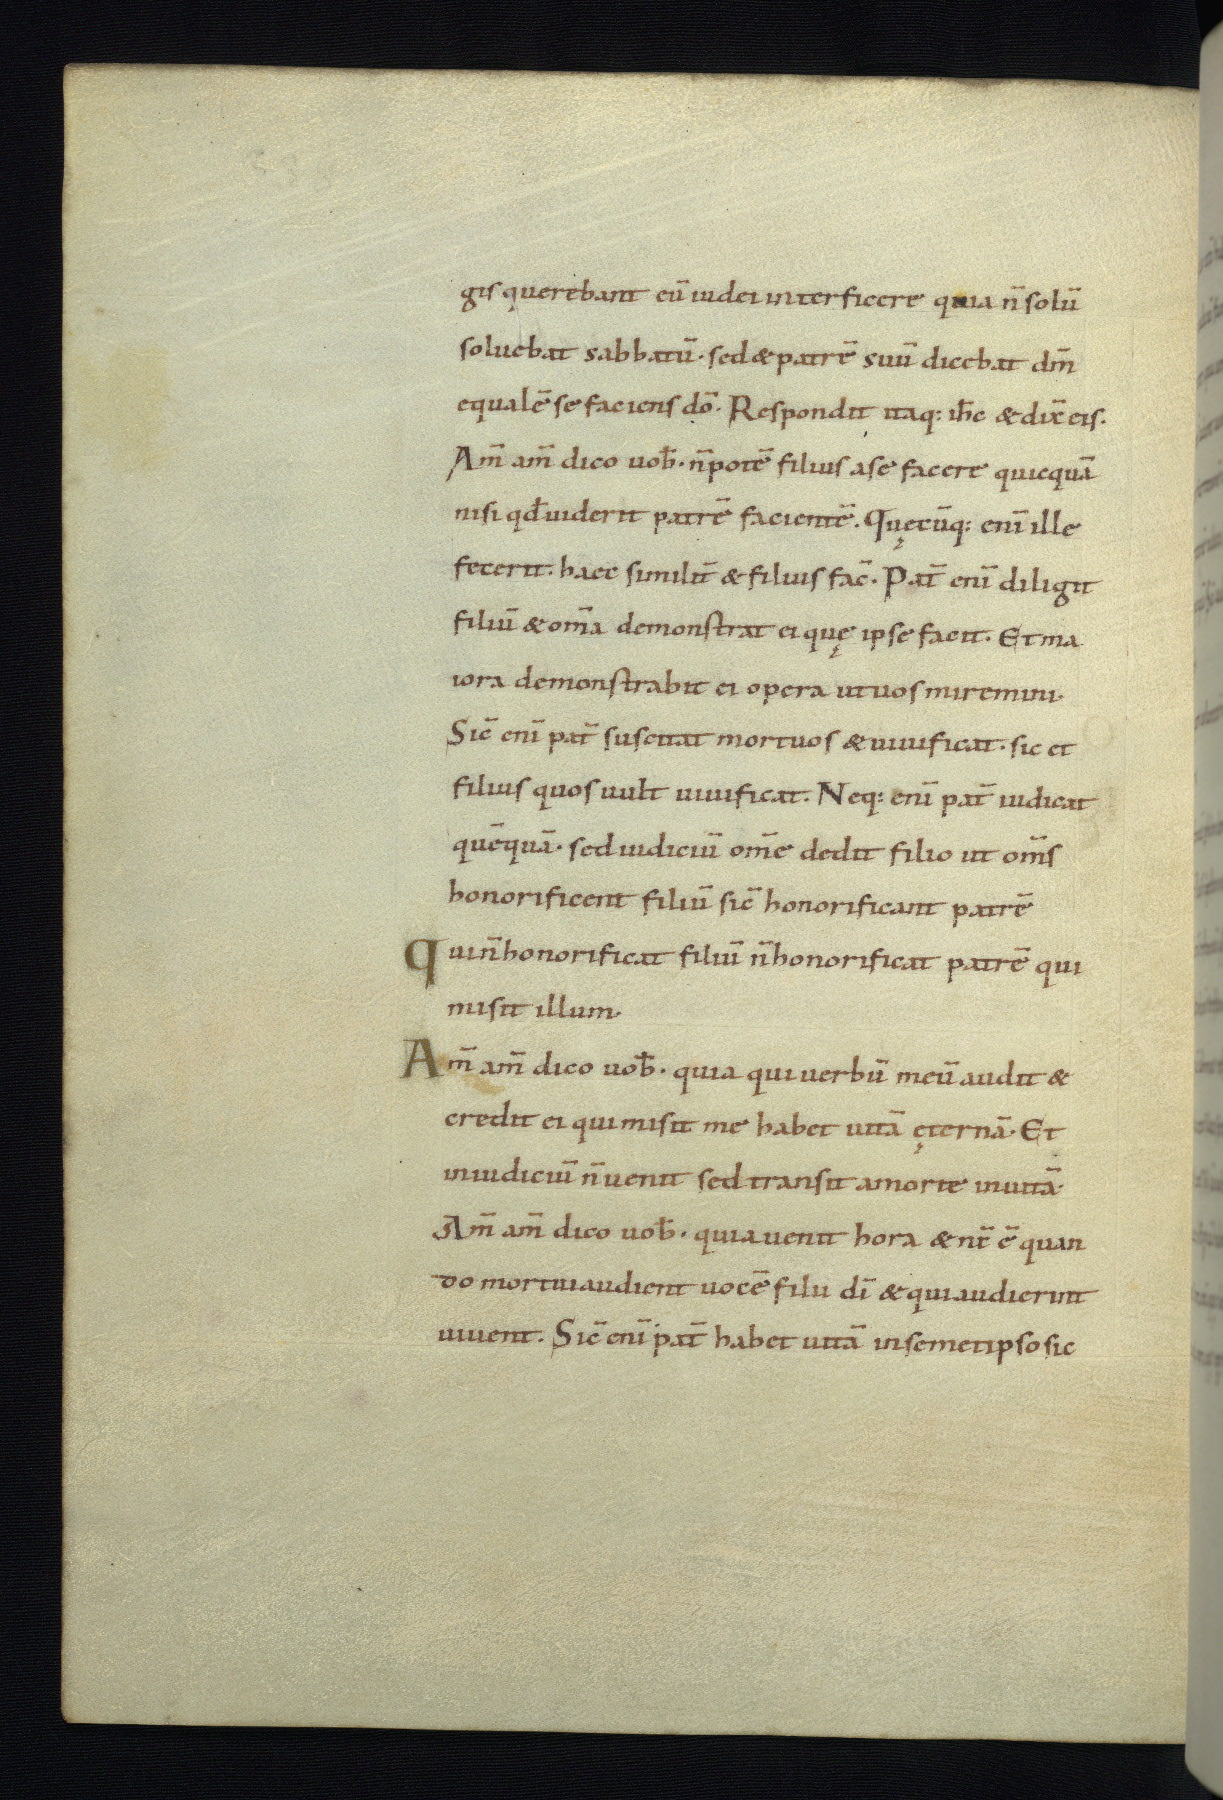 gis querebant eū iudei interficere quia n̄ solū
soluebat sabbatū· sed & patrē suū dicebat dm̄
equalē se faciens dō· Respondit itaq: ih̄c & dix̄ eis·
Am̄ am̄ dico uob̄· n̄ potē filius a se facere quicquā
nisi qd̄ uiderit patrē facientē. Quęcūq: enī ille
fecerit· haec similit̄ & filius fac̄· Pat̄ enī diligit
filiū & om̄a demonstrat ei quę ipse facit· Et ma
iora demonstrabit ei opera ut uos miremini·
Sic̄ enī pat̄ suscitat mortuos & uiuificat· sic et
filius quos uult uiuificat· Neq: enī pat̄ iudicat
quēquā· sed iudiciū om̄e dedit filio ut om̄s
honorificent filiū sic̄ honorificant patrē
qui n̄ honorificat filiū n̄ honorificat patrē qui
misit illum·
Am̄ am̄ dico uob̄· quia qui uerbū meū audit &
credit ei qui misit me habet uitā ęternā· Et
in iudiciū n̄ uenit sed transit a morte in uitā·
Am̄ am̄ dico uob̄· quia uenit hora & nc̄ ē quan
do mortui audient uocē filii dī & qui audierint
uiuent· Sic̄ enī pat̄ habet uitā in semetipso sic